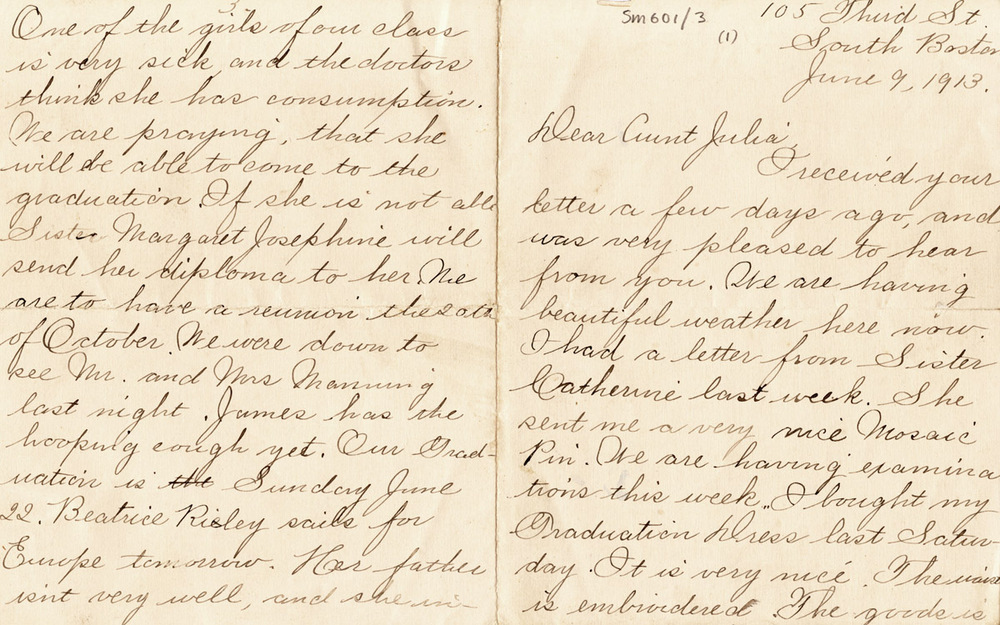 Sm601/3
(1)
105 Third St.
South Boston
June 9, 1913.
Dear Aunt Julia,
I received your
letter a few days ago, and
was very pleased to hear
from you. We are having
beautiful weather here now.
I had a letter from Sister
Catherine last week. She
sent me a very nice Mosaic
Pin. We are having examina
tions this week. I bought my
Graduation Dress last Satur-
day. It is very nice. The waist
is embroidered. The goods is
One of the girls of our class
is very sick, and the doctors
think she has consumption.
We are praying, that she
will be able to come to the
graduation. If she is not able
Sister Margaret Josephine will
send her diploma to her. We
are to have a reunion the 20th
of October. We were down to
see Mr. and Mrs Manning
last night. James has the
hooping cough yet. Our Grad-
uation is the Sunday June
22. Beatrice Risley sails for
Europe tomorrow. Her father
isnt very well, and she in-